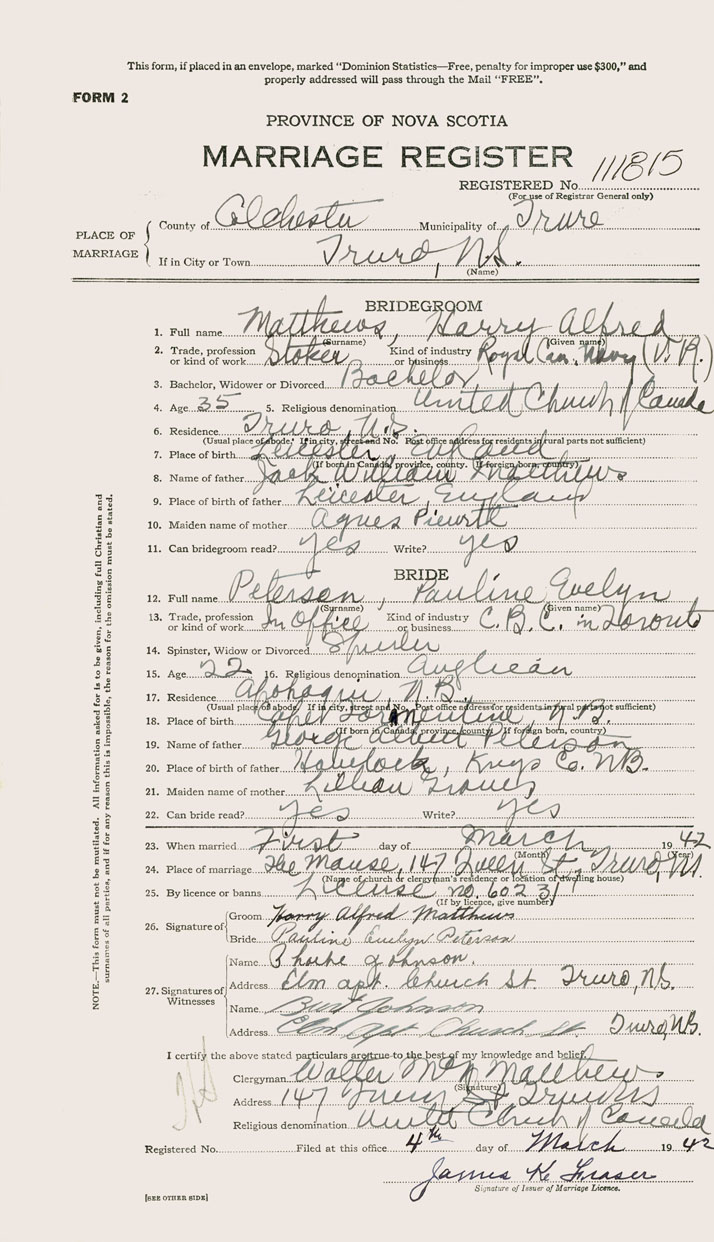 This form, if placed in an envelope, marked "Dominion Statistics—Free, penalty for improper use $300," and
properly addressed will pass through the Mail "FREE".
FORM 2
PROVINCE OF NOVA SCOTIA
MARRIAGE REGISTER
111815
REGISTERED No.
(For use of Registrar General only)
PLACE OF MARRIAGE
County of Colchester Municipality of Truro
If in City or Town Truro, N.S.
(Name)
BRIDEGROOM
1. Full name Matthews, Harry Alfred
(Surname) (Given name)
2. Trade, profession or kind of work Stoker Kind of industry or business Royal Can. Navy (V.R.)
3. Bachelor, Widower or Divorced Bachelor
4. Age 35 5. Religious denomination United Church of Canada
6. Residence Truro N.S.
(Usual place of abode. If in city, street and No. Post office address for residents in rural parts not sufficient)
7. Place of birth Leicester England
(If born in Canada, province, county. If foreign born, country)
8. Name of father Jack William Matthews
9. Place of birth of father Leicester, England
10. Maiden name of mother Agnes
11. Can bridegroom read? yes Write? yes
BRIDE
12. Full name Peterson, Pauline Evelyn
(Surname) (Given name)
13. Trade, profession or kind of work In Office Kind of industry or business C.B.C. in Toronto
14. Spinster, Widow or Divorced
15. Age 22 16. Religious denomination Anglican
17. Residence Apohaqui, N.B.
(Usual place of abode. If in city, street and No. Post office address for residents in rural parts not sufficient)
18. Place of birth Cape Tormentine N.B.
(If born in Canada, province, county. If foreign born, country)
19. Name of father George Albert Peterson
20. Place of birth of father Havelock, Kings Co. N.B.
21. Maiden name of mother Lillian
22. Can bride read? yes Write? yes
23. When married First day of March 1942
(Month) (Year)
24. Place of marriage The Manse, 147 Queen St., Truro, N.S.
(Name of church or clergyman's residence or location of dwelling house)
25. By licence or banns License no. 60231
(If by licence, give number)
26. Signature of
Groom Harry Alfred Matthews
Bride Pauline Evelyn Peterson
27. Signatures of Witnesses
Name Johnson.
Address Elm apt. Church St. Truro, N.S.
Name Burt Johnson
Address Elm Apt Church St. Truro, N.S.
I certify the above stated particulars are true to the best of my knowledge and belief,
Clergyman Walter Matthews
(Signature)
Address 147 Queen St Truro NS
Religious denomination United Church of Canada
Registered No. Filed at this office 4th day of March 1942
James K. Fraser
Signature of Issuer of Marriage Licence.
[SEE OTHER SIDE]
NOTE.—This form must not be mutilated. All information asked for is to be given, including full Christian and
surnames of all parties, and if for any reason this is impossible, the reason for the omission must be stated.